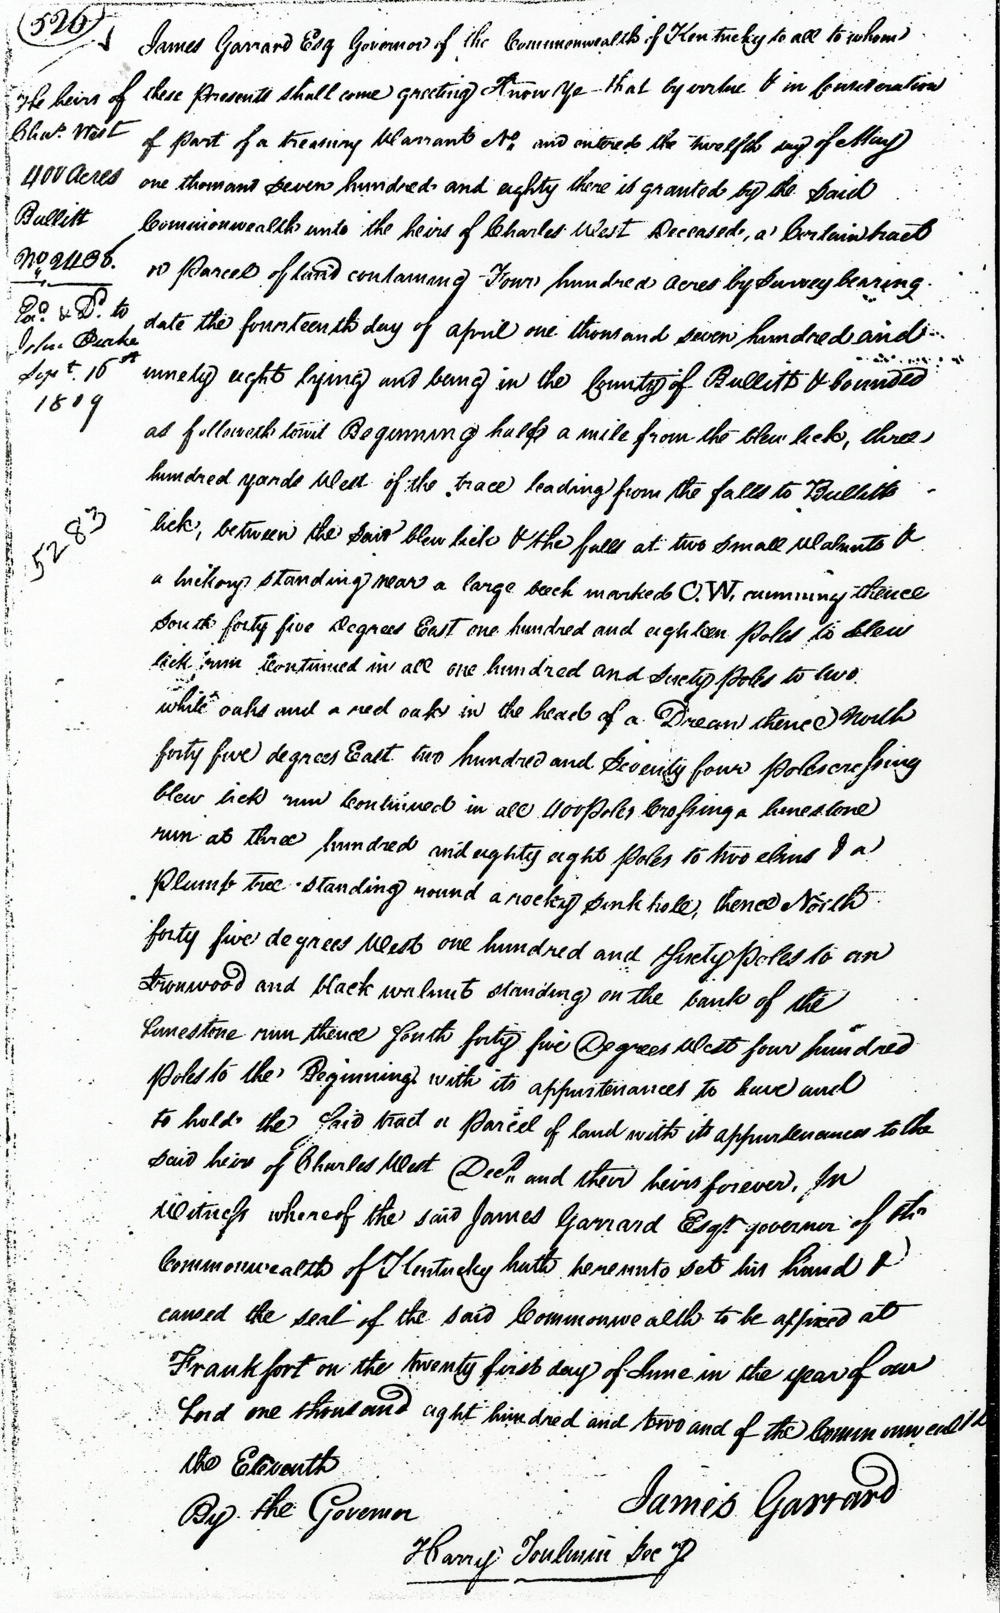 526
James Garrard Esq Governor of the Commonwealth of Kentucky to all to whom
these Presents shall come greeting Know Ye that by virtue & in Consideration
of part of a treasury Warrant No. and entered the twelfth day of May
one thousand seven hundred and eighty there is granted by the said
Commonwealth unto the heirs of Charles West Deceased, a Certain tract
or Parcel of land containing Four hundred acres by Survey bearing
date the fourteenth day of april one thousand seven hundred and
ninety eight lying and being in the County of Bullitt & bounded
as followeth towit Beginning half a mile from the blew lick, three
hundred yards West of the trace leading from the falls to Bullitts
lick, between the said blew lick & the falls at two small Walnuts &
a hickory standing near a large beech marked C.W. running thence
South forty five Degrees East one hundred and eighteen Poles to blew
lick run Continued in all one hundred and sixty Poles to two
white oaks and a red oak in the head of a Drean thence North
forty five degrees East two hundred and Seventy four Poles crossing
blew lick run Continued in all 400 Poles Crossing a limestone
run at three hundred and eighty eight Poles to two elms & a
Plumb tree standing round a rocky sink hole, thence North
forty five degrees West one hundred and sixty Poles to an
Ironwood and black walnut standing on the bank of the
Limestone run thence South forty five Degrees West four hundred
Poles to the Beginning with its appurtenances to have and
to hold the said tract or Parcel of land with its appurtenances to the
said heirs of Charles West Decd. and their heirs forever. In
Witness whereof the said James Garrard Esqr governor of the
Commonwealth of Kentucky hath hereunto set his hand &
caused the seal of the said Commonwealth to be affixed at
Frankfort on the twenty first day of June in the year of our
Lord one thousand eight hundred and two and of the Commonwealth
the Eleventh
By the Governor
James Garrard
Harry Toulmin Secy
The heirs of
Chas. West
400 Acres
Bullitt
No. 2436.
Exd. & Dd. to
John Burke
Sept. 16th
1809
5283